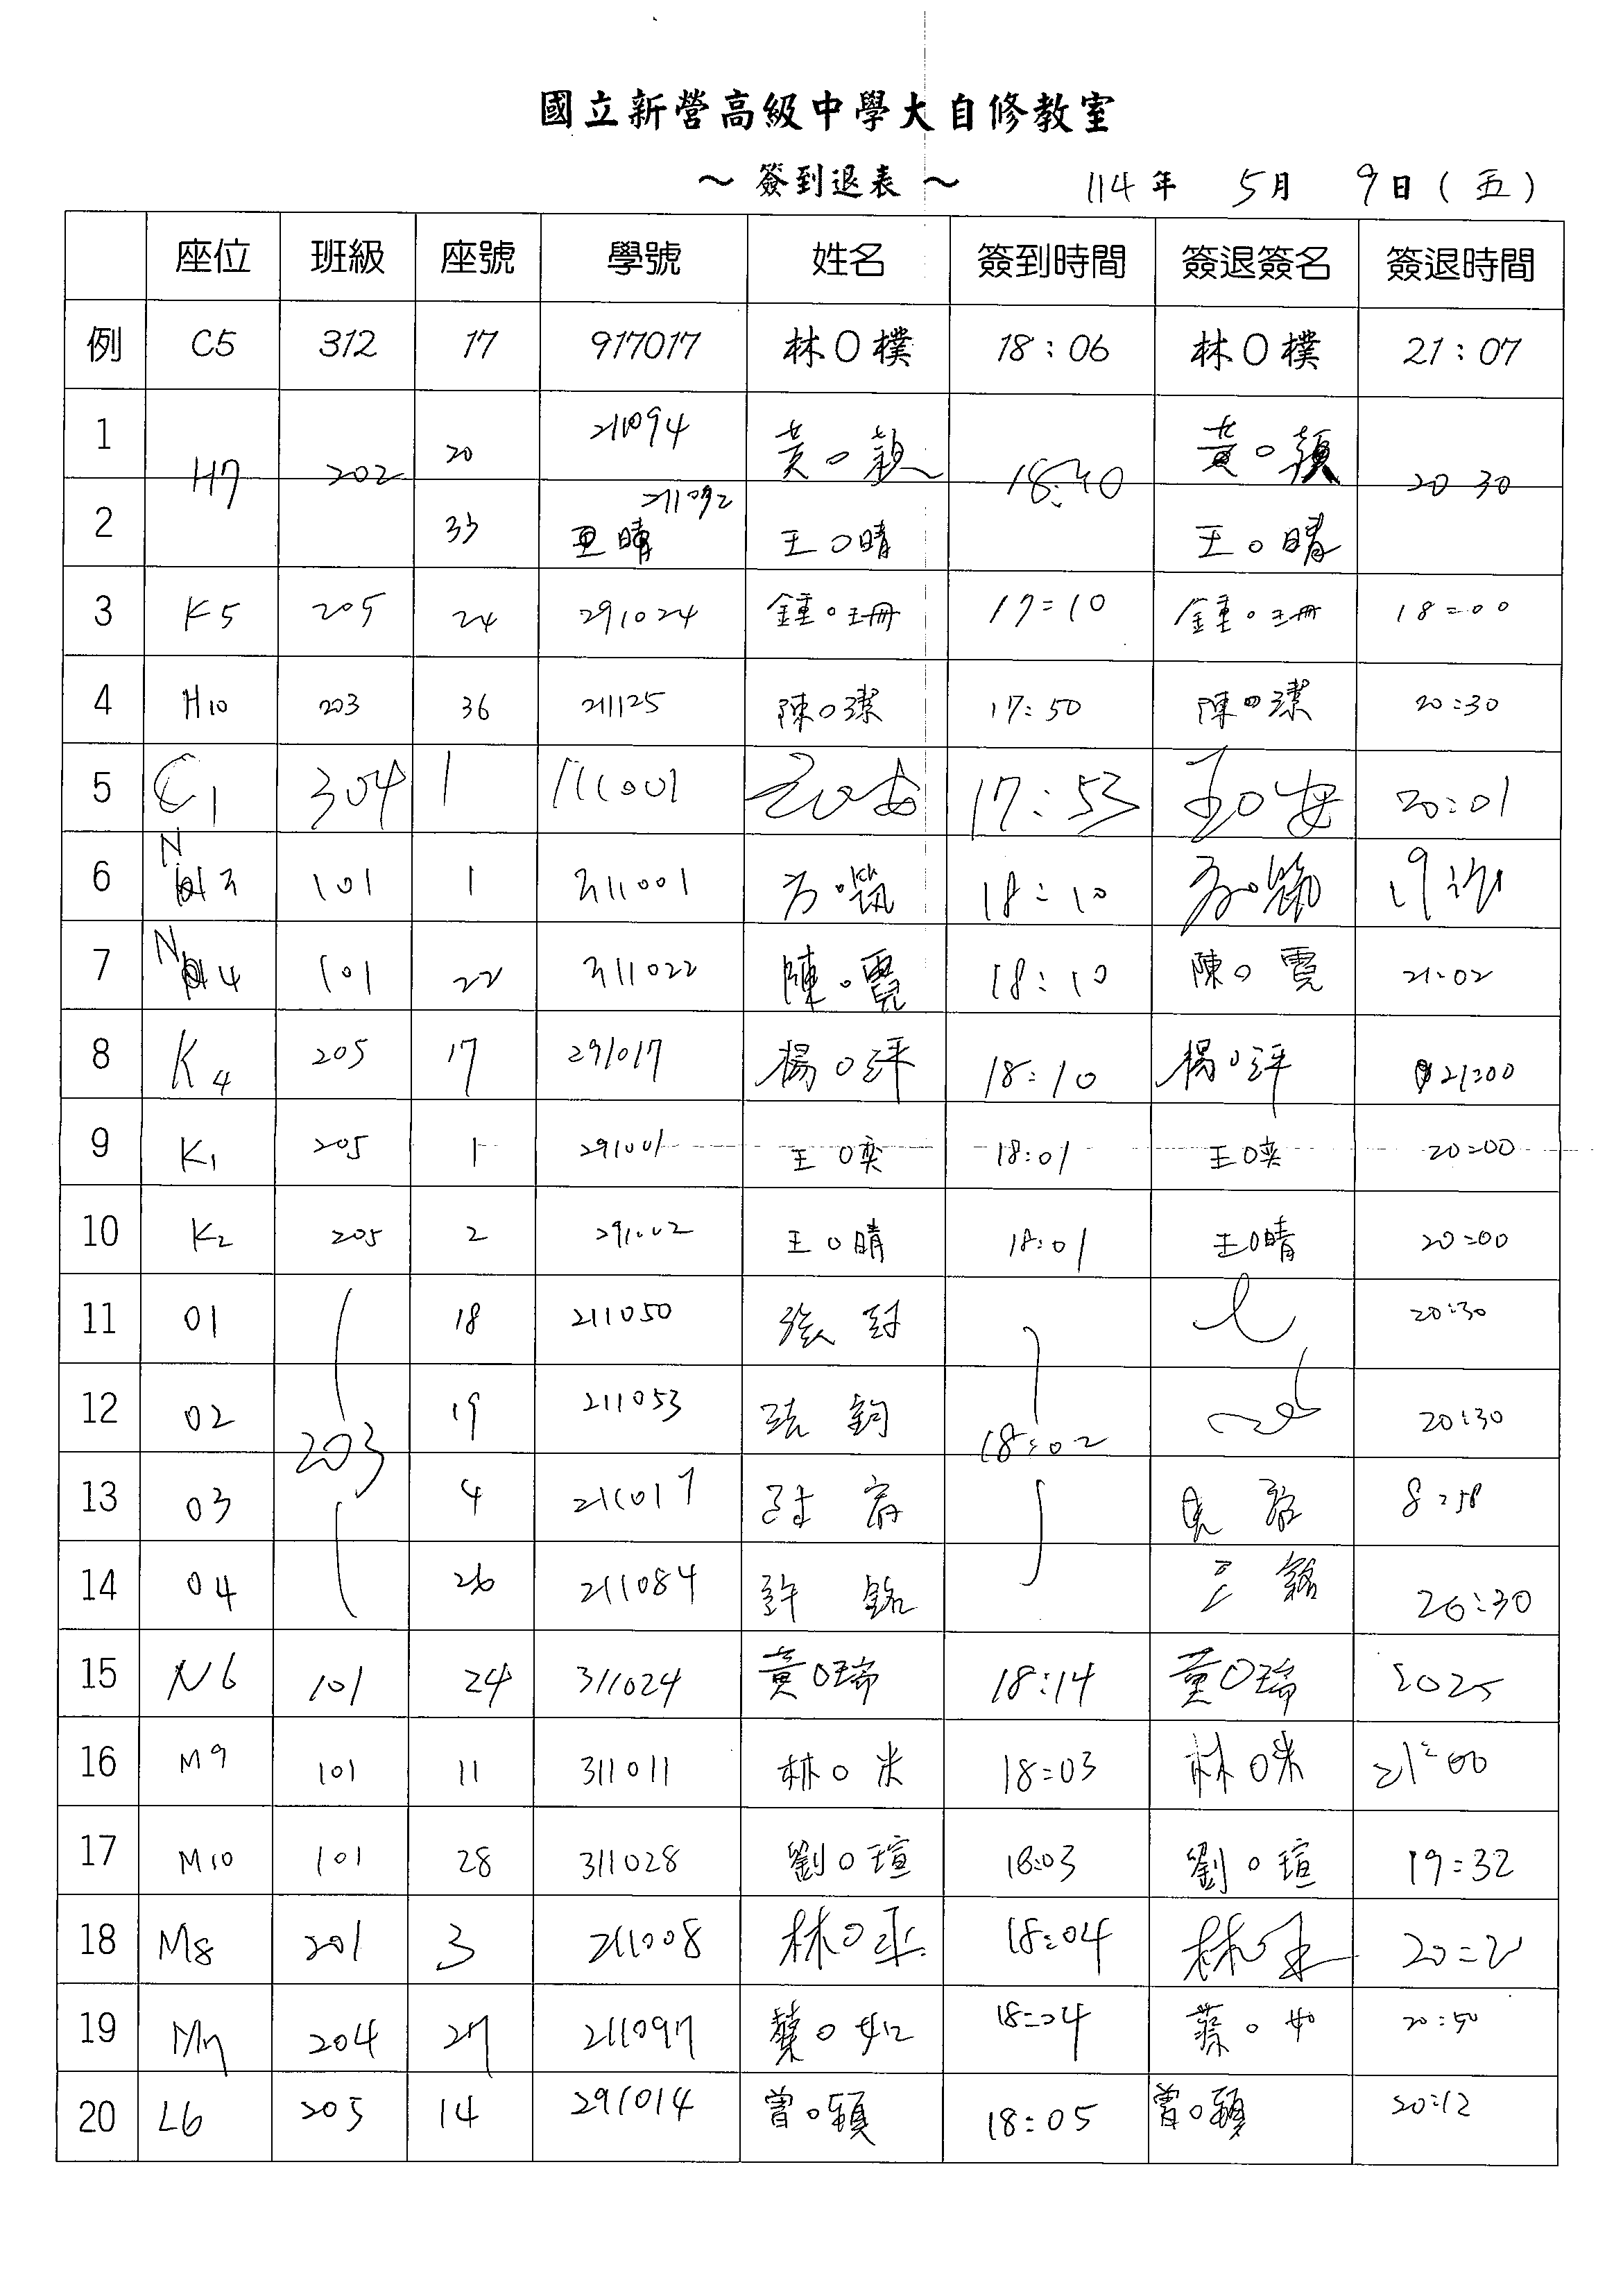 國立新營高級中學大自修教室
～ 簽到退表 ～ 114年 5月 9日（五）
座位 班級 座號 學號 姓名 簽到時間 簽退簽名 簽退時間
例 C5 312 17 917017 林〇樸 18：06 林〇樸 21：07
1 H7 202 20 211094 黃〇穎 18:40 黃〇穎 20 30
2 33 211092 王〇晴 王〇晴
3 K5 205 24 291024 鍾〇珊 17:10 鍾〇珊 18:00
4 H10 203 36 211125 陳〇潔 17:50 陳〇潔 20:30
5 C1 304 1 111001 王〇安 17:53 王〇安 20:01
6 N3 101 1 311001 方〇筑 18:10
7 N4 101 22 311022 陳〇霓 18:10 陳〇霓 21:02
8 K4 205 17 291017 楊〇評 18:10 楊〇評 21:00
9 K1 205 1 291001 王〇奕 18:01 王〇奕 20:00
10 K2 205 2 291002 王〇晴 18:01 王〇晴 20:00
11 01 203 18 211050 張 18:02 20:30
12 02 19 211053 鈞 20:30
13 03 4 211017 8:58
14 04 26 211084 許 銘 銘 20:30
15 N6 101 24 311024 黃〇瑞 18:14 黃〇瑞 2025
16 M9 101 11 311011 林〇米 18:03 林〇米 21:00
17 M10 101 28 311028 劉〇瑄 18:03 劉〇瑄 19:32
18 M8 201 3 211008 林〇丞 18:04 林〇丞 20:21
19 M7 204 27 211097 蔡〇妃 18:04 蔡〇 20:50
20 L6 205 14 291014 曾〇穎 18:05 曾〇穎 20:12